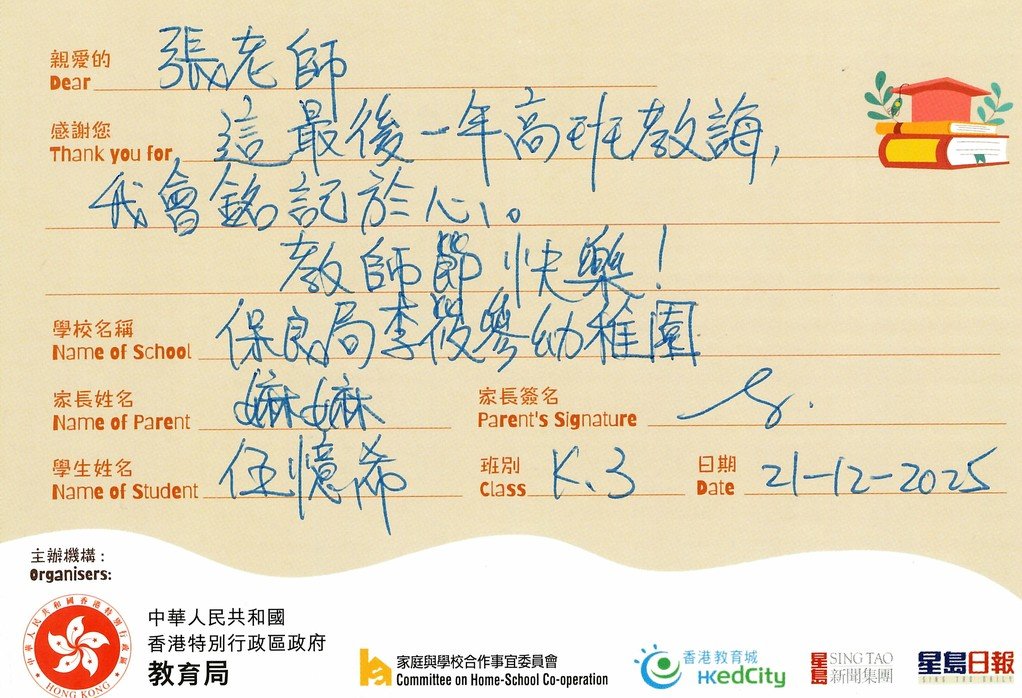 親愛的 張老師
Dear
感謝您 這最後一年高班教誨,
Thank you for
我會銘記於心。
教師節快樂!
學校名稱 保良局李筱參幼稚園
Name of School
家長姓名 嫲嫲 家長簽名
Name of Parent Parent's Signature
學生姓名 伍憶希 班別 K.3 日期 21-12-2025
Name of Student Class Date
主辦機構:
Organisers:
中華人民共和國
香港特別行政區政府
教育局
中華人民共和國香港特別行政區
HONG KONG
家庭與學校合作事宜委員會
Committee on Home-School Co-operation
香港教育城
HKedCity
星島 SING TAO
新聞集團
星島日報
SING TAO DAILY